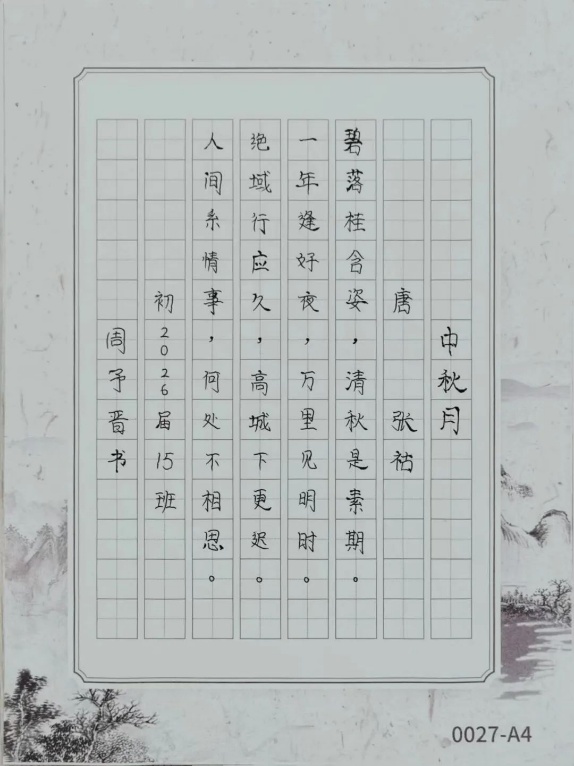 中秋月
唐 张祜
碧落桂含姿，清秋是素期。
一年逢好夜，万里见明时。
绝域行应久，高城下更迟。
人间系情事，何处不相思。
初2026届15班
周予晋书
0027-A4